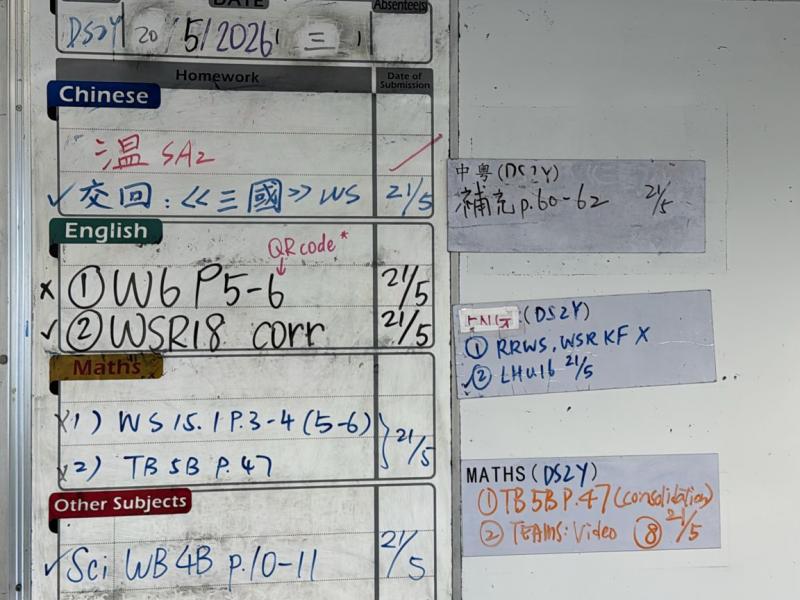 DATE
Absentee(s)
DS2Y 20/5/2026 (三)
Homework
Date of Submission
Chinese
溫 SA2
✓ 交回:《三國》WS 21/5
English
QR code*
x ① W6 P5-6 21/5
✓ ② WSR18 corr 21/5
Maths
x1) WS 15.1 P.3-4 (5-6)
x2) TB 5B P.47
} 21/5
Other Subjects
✓ Sci WB 4B p.10-11 21/5
中粵(DS2Y)
補充 p.60-62 21/5
ENG (DS2Y)
① RRWS, WSR KF X
✓② LHU16 21/5
MATHS (DS2Y)
① TB 5B P.47 (consolidation)
② TEAMS: Video ⑧ 21/5